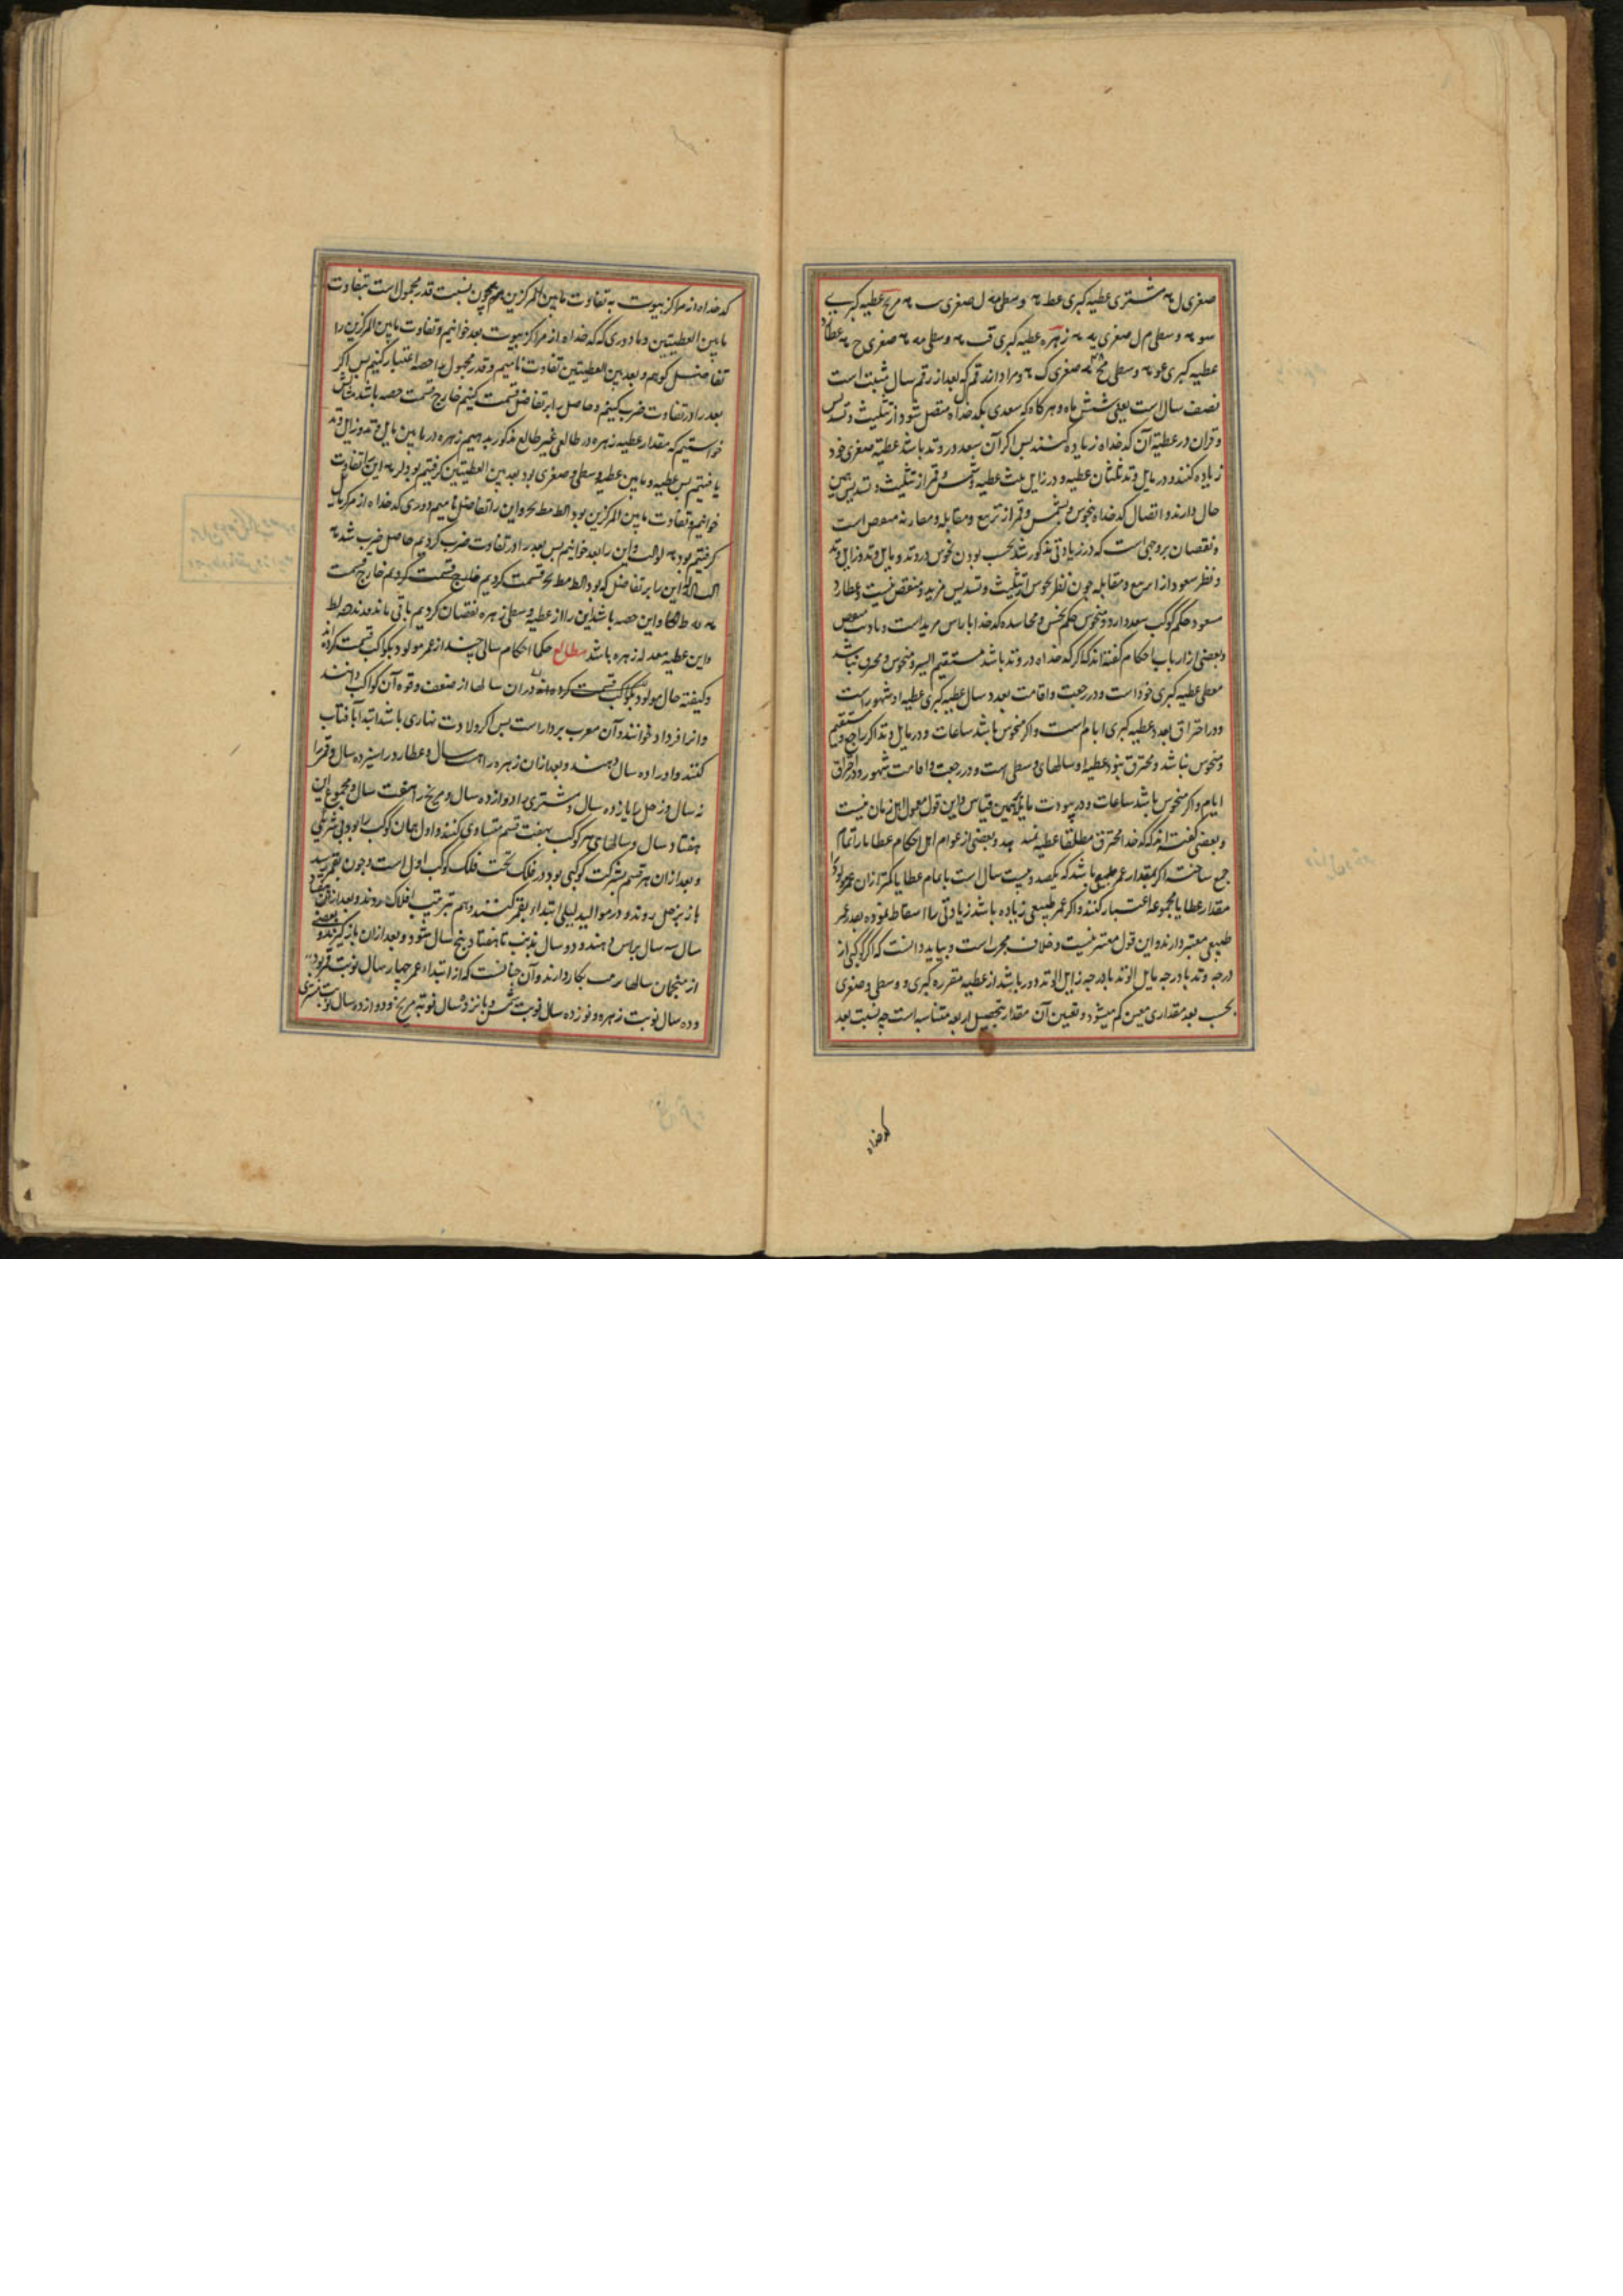 صغری ل مشتری عطیه کبری عط وسطی مه ل صغری سب مریخ عطیه کبری
سو وسطی م ل صغری یه زهره عطیه کبری فب وسطی مه صغری ح عطارد
عطیه کبری عو وسطی مح صغری ک ومراد اندر قم که بعد از رقم سال ثبت است
نصف سال است یعنی شش ماه و هرکاه که سعدی بکدخداه متصل شود از تثلیث و تسدیس
و قران در عطیة آن کدخداه زیاده کنند پس اکر آن سعد در وتد باشد عطیة صغری خود
زیاده کنند و در مایل وتد ثلثان عطیه و در زایل ثلث عطیه و شمس و قمر از تثلیث و تسدیس همین
حال دارند و اتصال کدخداه بنحوس و بشمس و قمر از تربیع و مقابله و مقارنه منقص است
و نقصان بر وجهی است که در زیادتی مذکور شد بحسب بودن نحوس در وتد و مایل وتد و زایل وتد
و نظر سعود از تربیع و مقابله چون نظر نحوس از تثلیث و تسدیس مزید و منقص نیست و عطارد
مسعود حکم کوکب سعد دارد و منحوس حکم نحس و محاسده کدخدا با راس مزید است و با ذنب منقص
و بعضی از ارباب احکام کفته اند که اکر کدخداه در وتد باشد مستقیم السیر و منحوس و محترق نباشد
معطی عطیه کبری خود است و در رجعت و اقامت بعدد سال عطیه کبری عطیه او شهور است
و در احتراق بعدد عطیه کبری ایام است و اکر منحوس باشد ساعات و در مایل وتد اکر راجع و مستقیم
و منحوس نباشد و محترق نبود عطیه او سالهای وسطی است و در رجعت و اقامت شهور و در احتراق
ایام و اکر منحوس باشد ساعات و در بیوت مایله همین قیاس و این قول معمول اهل زمان نیست
و بعضی کفته اند که کدخدا محترق مطلقا عطیه نمیدهد و بعضی از عوام اهل احکام عطایا را تمام
جمع ساخته اکر بمقدار عمر طبیعی باشد که یکصد و بیست سال است با تمام عطایا کمتر از آن عمر مولود را
مقدار عطایا مجموعه اعتبار کنند و اکر عمر طبیعی زیاده باشد زیادتی را اسقاط نموده بعد عمر
طبیعی معتبر دارند و این قول معتبر نیست و خلاف مجرب است و بباید دانست که اکر کوکبی از
درجه وتد یا درجه مایل الوتد یا درجه زایل الوتد دور باشد از عطیه مقرره کبری و وسطی و صغری
بحسب بعد مقداری معین کم میشود و تعیین آن مقدار بتحصیل اربعه متناسبه است چه نسبت بعد
کدخداه
کدخداه از مراکز بیوت به تفاوت مابین المرکزین همچون نسبت قدر مجهول است بتفاوت
مابین العطیتین و ما دوری که کدخداه از مراکز بیوت بعد خوانیم و تفاوت مابین المرکزین را
تفاضل کوییم و بعد بین العطیتین تفاوت نامیم و قدر مجهول را حصه اعتبار کنیم پس اکر
بعد را در تفاوت ضرب کنیم و حاصل را بر تفاضل قسمت کنیم خارج قسمت حصه باشد مثالش
خواستیم که مقدار عطیه زهره در طالعی غیر طالع مذکور بدهیم زهره در مابین مایل وتد و زایل وتد
یافتیم پس عطیه و مابین عطیه وسطی و صغری بود بعد بین العطیتین کرفتیم بود لر این را تفاوت
خوانیم و تفاوت مابین المرکزین بود الط مط بح و این را تفاضل نامیم و دوری کدخداه از مرکز مایل
کرفتیم بود و این را بعد خوانیم پس بعد را در تفاوت ضرب کردیم حاصل ضرب شد
این را بر تفاضل که بود الط مط بح قسمت کردیم خارج قسمت
و این حصه باشد این را از عطیه وسطی زهره نقصان کردیم باقی ماند
و این عطیه معدله زهره باشد مطالع حکما احکام سالی چند از عمر مولود بکواکب قسمت کرده اند
و کیفیة حال مولود در آن سالها از ضعف و قوه آن کواکب دانند
و آنرا فردار خوانند و آن معرب بردار است پس اکر ولادت نهاری باشد ابتدا بآفتاب
کنند و او را ده سال دهند و بعد از آن زهره را هشت سال و عطارد را سیزده سال و قمر را
نه سال و زحل را یازده سال و مشتری را دوازده سال و مریخ را هفت سال و مجموع این
هفتاد سال و سالهای هر کوکب بهفت قسم متساوی کنند و اول همان کوکب را بود بی شریکی
و بعد از آن هر قسم بشرکت کوکبی بود در فلک تحت فلک کوکب اول است و چون بقمر رسد
باز بزحل روند و در موالید لیلی ابتدا بقمر کنند و هم بترتیب افلاک روند و بعد از آن هفتاد
سال سه سال براس دهند و دو سال بذنب تا هفتاد و پنج سال شود و بعد از آن باز کیرند و بعضی
از منجمان سالها بکار دارند و آن چنانست که از ابتداء عمر چهار سال نوبت قمر بود
و ده سال نوبت زهره و نوزده سال نوبت شمس و پانزده سال نوبة مریخ و دوازده سال نوبت مشتری